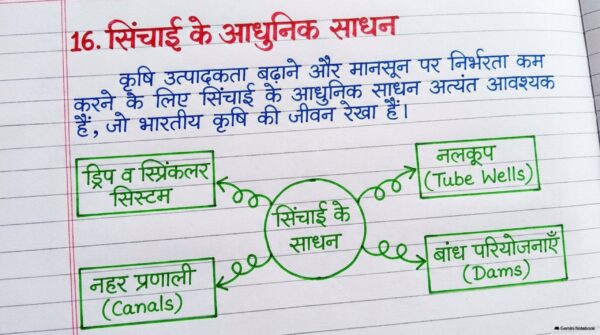 16. सिंचाई के आधुनिक साधन
कृषि उत्पादकता बढ़ाने और मानसून पर निर्भरता कम
करने के लिए सिंचाई के आधुनिक साधन अत्यंत आवश्यक
हैं, जो भारतीय कृषि की जीवन रेखा हैं।
ड्रिप व स्प्रिंकलर
सिस्टम
नलकूप
(Tube Wells)
सिंचाई के
साधन
नहर प्रणाली
(Canals)
बांध परियोजनाएँ
(Dams)
Gemini Notebook